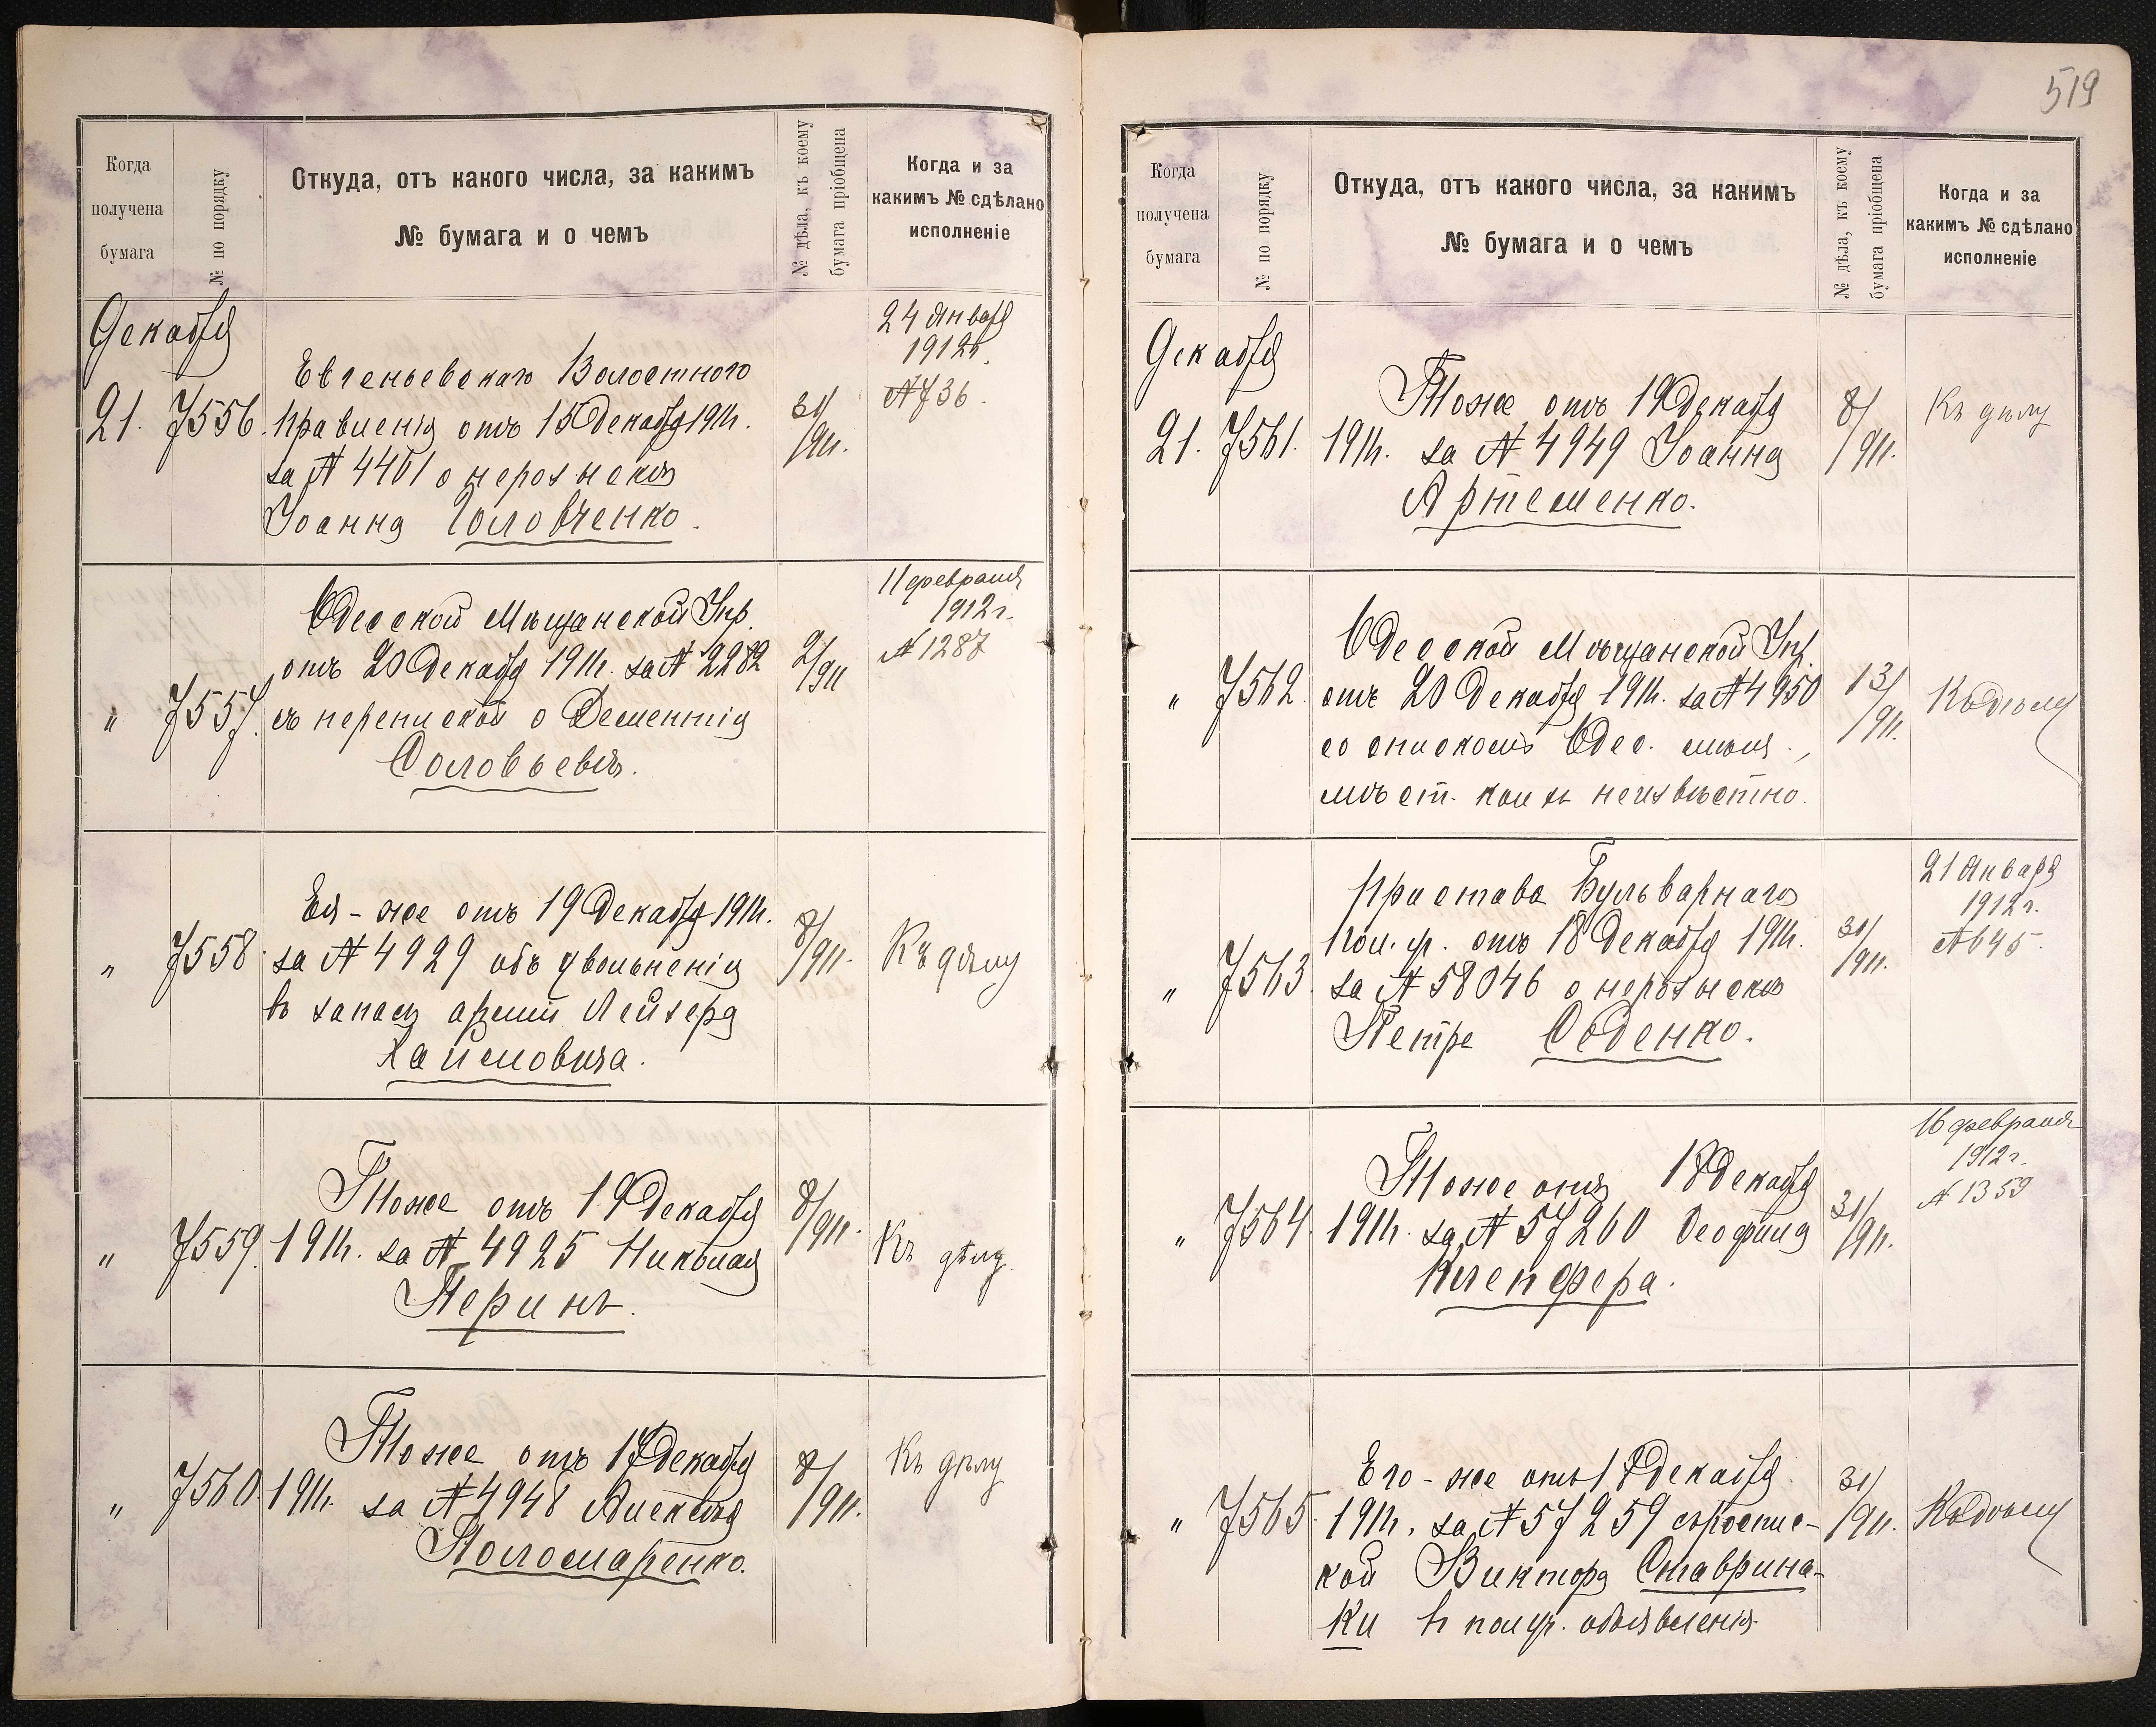 Когда
получена
бумага
№ по порядку
Откуда, отъ какого числа, за какимъ
№ бумага и о чемъ
№ дѣла, къ коему
бумага пріобщена
Когда и за
какимъ № сдѣлано
исполненіе
Декабря
21. 7556.
Евгеньевскаго Волостного
Правленія отъ 15 Декабря 1911г.
за № 4461 о нерозыскѣ
Іоанна Головченко.
31/911.
24 Января
1912г.
№ 736.
" 7557.
Одесской Мѣщанской Упр.
отъ 20 Декабря 1911г. за № 2282
съ перепиской о Дементія
Соловьевѣ.
2/911
11 февраля
1912г.
№ 1287
" 7558.
Ея-же отъ 19 Декабря 1911г.
за № 4929 объ увольненіи
въ запасъ арміи Лейзера
Хаимовича.
8/911.
Къ дѣлу
" 7559.
Тоже отъ 19 Декабря
1911г. за № 4925 Николая
Перинъ.
8/911.
Къ дѣлу
" 7560.
Тоже отъ 17 Декабря
1911г. за № 4948 Алексѣя
Поломаренко.
8/911.
Къ дѣлу
519
Когда
получена
бумага
№ по порядку
Откуда, отъ какого числа, за какимъ
№ бумага и о чемъ
№ дѣла, къ коему
бумага пріобщена
Когда и за
какимъ № сдѣлано
исполненіе
Декабря
21. 7561.
Тоже отъ 19 Декабря
1911г. за № 4949 Іоанна
Артеменко.
8/911.
Къ дѣлу
" 7562.
Одесской Мѣщанской Упр.
отъ 20 Декабря 1911г. за № 4950
со спискомъ Одес. мѣщ.,
мѣст. коихъ неизвѣстно.
13/911.
Къ дѣлу
" 7563.
Пристава Бульварнаго
Пол. уч. отъ 18 Декабря 1911г.
за № 58046 о нерозыскѣ
Петре Овденко.
31/911.
21 Января
1912г.
№ 645.
" 7564.
Тоже отъ 18 Декабря
1911г. за № 57260 Теофила
Клепфера.
31/911.
16 февраля
1912г.
№ 1359
" 7565.
Его-же отъ 18 Декабря
1911г. за № 57259 съ роспис-
кой Виктора Ставрина-
ки въ получ. объявленія.
31/911.
Къ дѣлу